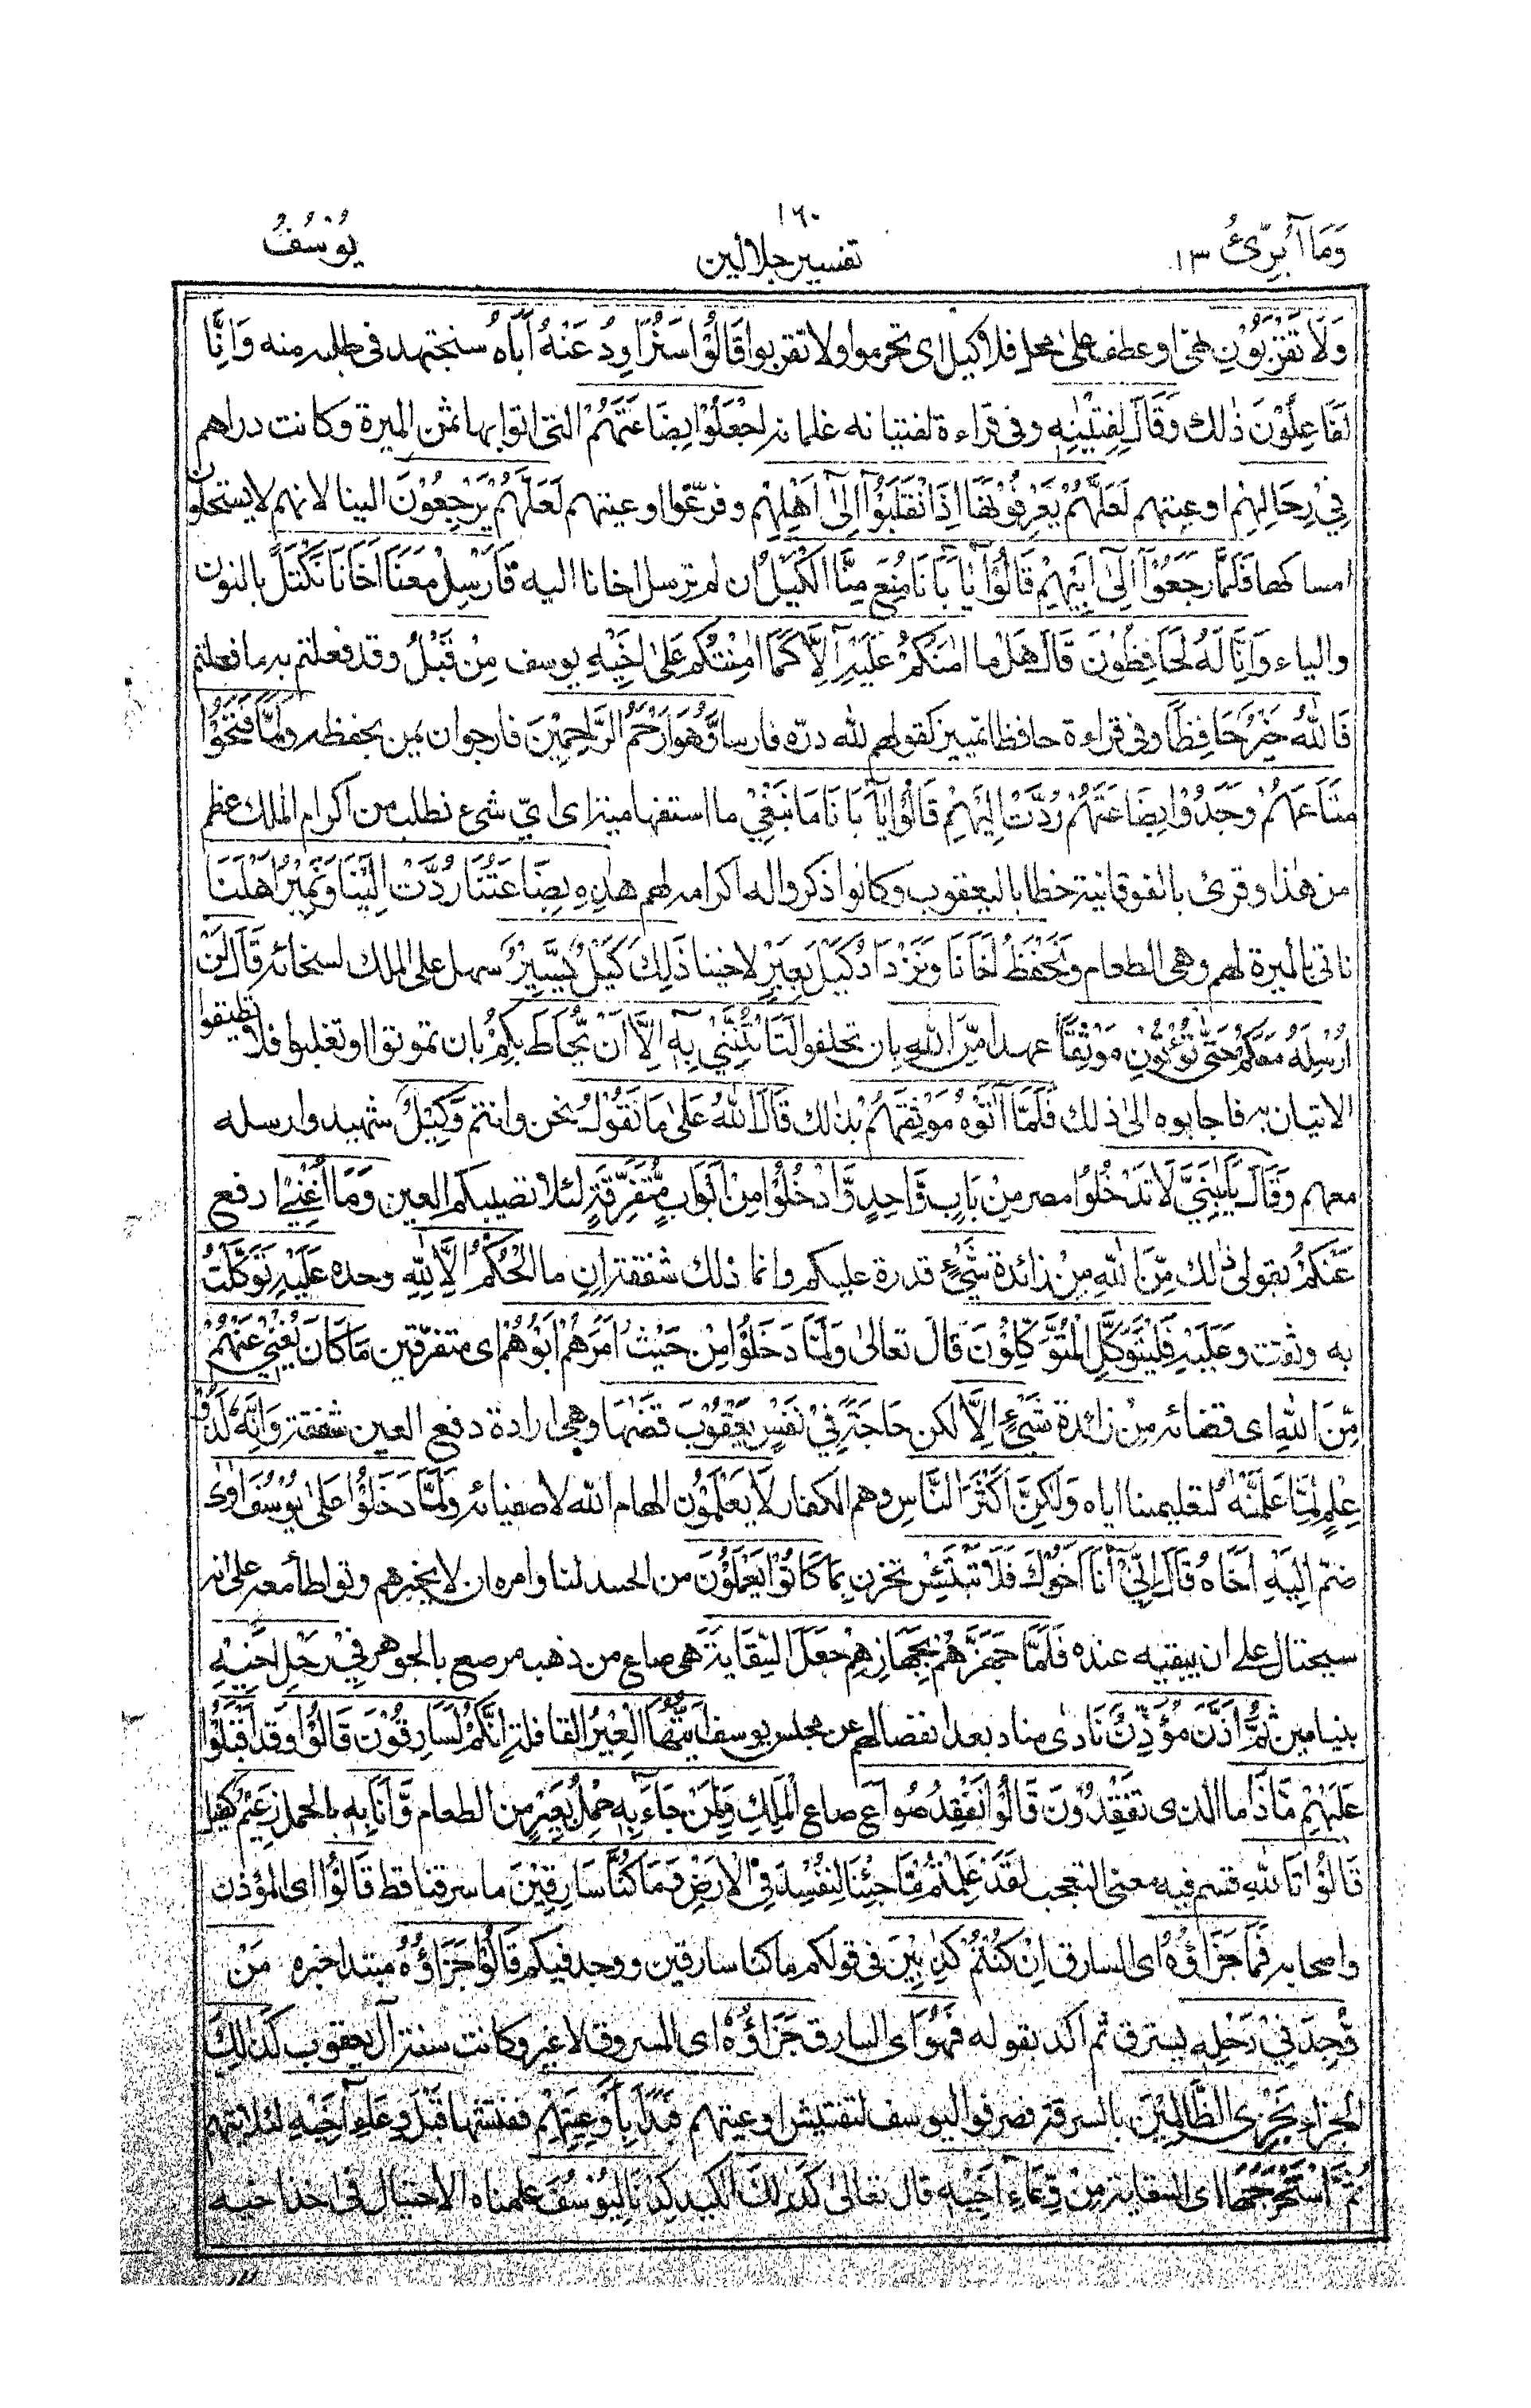 ١٦٠
وَمَآ أُبَرِّئُ ١٣
تفسير جلالين
يُوْسُفُ
وَلَا تَقْرَبُوْنِ نهى او عطف على محل فلا كيل اى تحرموا ولا تقربوا قَالُوْا سَنُرَاوِدُ عَنْهُ اَبَاهُ سنجتهد فى طلبه منه وَاِنَّا
لَفَاعِلُوْنَ ذٰلك وَقَالَ لِفِتْيٰنِهِ وفى قراءة لفتيانه غلمانه اجْعَلُوْا بِضَاعَتَهُمْ التى اتوا بها ثمن الميرة وكانت دراهم
فِيْ رِحَالِهِمْ اوعيتهم لَعَلَّهُمْ يَعْرِفُوْنَهَا اِذَا انْقَلَبُوْٓا اِلٰٓى اَهْلِهِمْ وفرّغوا اوعيتهم لَعَلَّهُمْ يَرْجِعُوْنَ الينا لانهم لا يستحلون
امساكها فَلَمَّا رَجَعُوْٓا اِلٰٓى اَبِيْهِمْ قَالُوْا يٰٓاَبَانَا مُنِعَ مِنَّا الْكَيْلُ ان لم ترسل اخانا اليه فَاَرْسِلْ مَعَنَآ اَخَانَا نَكْتَلْ بالنون
والياء وَاِنَّا لَهُ لَحَافِظُوْنَ قَالَ هَلْ ما اٰمَنُكُمْ عَلَيْهِ اِلَّا كَمَآ اَمِنْتُكُمْ عَلٰٓى اَخِيْهِ يوسف مِنْ قَبْلُ وقد فعلتم به ما فعلتم
فَاللّٰهُ خَيْرٌ حَافِظًا وفى قراءة حافظا تمييز كقولهم لله درّه فارسا وَّهُوَ اَرْحَمُ الرَّاحِمِيْنَ فارجوان يمن بحفظه وَلَمَّا فَتَحُوْا
مَتَاعَهُمْ وَجَدُوْا بِضَاعَتَهُمْ رُدَّتْ اِلَيْهِمْ قَالُوْا يٰٓاَبَانَا مَا نَبْغِيْ ما استفهامية اى ايّ شىء نطلب من اكرام الملك عظم
من هٰذا وقرئ بالفوقانية خطابا ليعقوب وكانوا ذكروا له اكرامه لهم هٰذِهِ بِضَاعَتُنَا رُدَّتْ اِلَيْنَا وَنَمِيْرُ اَهْلَنَا
ناتى بالميرة لهم وهى الطعام وَنَحْفَظُ اَخَانَا وَنَزْدَادُ كَيْلَ بَعِيْرٍ لاخينا ذٰلِكَ كَيْلٌ يَّسِيْرٌ سهل على الملك لسخائه قَالَ لَنْ
اُرْسِلَهُ مَعَكُمْ حَتّٰى تُؤْتُوْنِ مَوْثِقًا عهدا مِّنَ اللّٰهِ بان تحلفوا لَتَأْتُنَّنِيْ بِهٓ اِلَّآ اَنْ يُّحَاطَ بِكُمْ بان تموتوا او تغلبوا فلا تطيقوا
الاتيان به فاجابوه الى ذلك فَلَمَّآ اٰتَوْهُ مَوْثِقَهُمْ بذلك قَالَ اللّٰهُ عَلٰى مَا نَقُوْلُ نحن وانتم وَكِيْلٌ شهيد وارسله
معهم وَقَالَ يٰبَنِيَّ لَا تَدْخُلُوْا مصر مِنْ بَابٍ وَّاحِدٍ وَّادْخُلُوْا مِنْ اَبْوَابٍ مُّتَفَرِّقَةٍ لئلا تصيبكم العين وَمَآ اُغْنِيْ ادفع
عَنْكُمْ بقولى ذٰلك مِّنَ اللّٰهِ مِنْ زائدة شَيْءٍ قدرة عليكم وانما ذلك شفقة اِنِ ما الْحُكْمُ اِلَّا لِلّٰهِ وحده عَلَيْهِ تَوَكَّلْتُ
به وثقت وَعَلَيْهِ فَلْيَتَوَكَّلِ الْمُتَوَكِّلُوْنَ قال تعالىٰ وَلَمَّا دَخَلُوْا مِنْ حَيْثُ اَمَرَهُمْ اَبُوْهُمْ اى متفرّقين مَا كَانَ يُغْنِيْ عَنْهُمْ
مِّنَ اللّٰهِ اى قضائه مِنْ زائدة شَيْءٍ اِلَّا لكن حَاجَةً فِيْ نَفْسِ يَعْقُوْبَ قَضٰهَا وهى ارادة دفع العين شفقة وَاِنَّهُ لَذُوْ
عِلْمٍ لِّمَا عَلَّمْنٰهُ لتعليمنا اياه وَلٰكِنَّ اَكْثَرَ النَّاسِ وهم الكفار لَا يَعْلَمُوْنَ الهام الله لاصفيائه وَلَمَّا دَخَلُوْا عَلٰى يُوْسُفَ اٰوٰٓى
ضمّ اِلَيْهِ اَخَاهُ قَالَ اِنِّيْٓ اَنَا اَخُوْكَ فَلَا تَبْتَئِسْ تحزن بِمَا كَانُوْا يَعْمَلُوْنَ من الحسد لنا وامره ان لا يخبرهم وتواطأ معه على انه
سيحتال على ان يبقيه عنده فَلَمَّا جَهَّزَهُمْ بِجَهَازِهِمْ جَعَلَ السِّقَايَةَ هى صاع من ذهب مرصع بالجوهر فِيْ رَحْلِ اَخِيْهِ
بنيامين ثُمَّ اَذَّنَ مُؤَذِّنٌ نادى مناد بعد انفصالهم عن مجلس يوسف اَيَّتُهَا الْعِيْرُ القافلة اِنَّكُمْ لَسَارِقُوْنَ قَالُوْا وَقد اَقْبَلُوْا
عَلَيْهِمْ مَّاذَا ما الذى تَفْقِدُوْنَ قَالُوْا نَفْقِدُ صُوَاعَ صاع الْمَلِكِ وَلِمَنْ جَآءَ بِهِ حِمْلُ بَعِيْرٍ من الطعام وَّاَنَا بِهِ بالحمل زَعِيْمٌ كفيل
قَالُوْا تَاللّٰهِ قسم فيه معنى التعجب لَقَدْ عَلِمْتُمْ مَّا جِئْنَا لِنُفْسِدَ فِي الْاَرْضِ وَمَا كُنَّا سَارِقِيْنَ ما سرقنا قط قَالُوْا اى المؤذن
واصحابه فَمَا جَزَآؤُهٓ اى السارق اِنْ كُنْتُمْ كٰذِبِيْنَ فى قولكم ما كنا سارقين ووجد فيكم قَالُوْا جَزَآؤُهُ مبتدا خبره مَنْ
وُّجِدَ فِيْ رَحْلِهِ يسترق ثم اكد بقوله فَهُوَ اى السارق جَزَآؤُهُ اى المسروق لا غير وكانت سنة آل يعقوب كَذٰلِكَ
الجزاء نَجْزِى الظَّالِمِيْنَ بالسرقة فصرفوا ليوسف لتفتيش اوعيتهم فَبَدَاَ بِاَوْعِيَتِهِمْ ففتشها قَبْلَ وِعَآءِ اَخِيْهِ لئلا يتهم
ثُمَّ اسْتَخْرَجَهَا اى السقاية مِنْ وِّعَآءِ اَخِيْهِ قال تعالىٰ كَذٰلِكَ الكيد كِدْنَا لِيُوْسُفَ علمناه الاحتيال فى اخذ اخيه